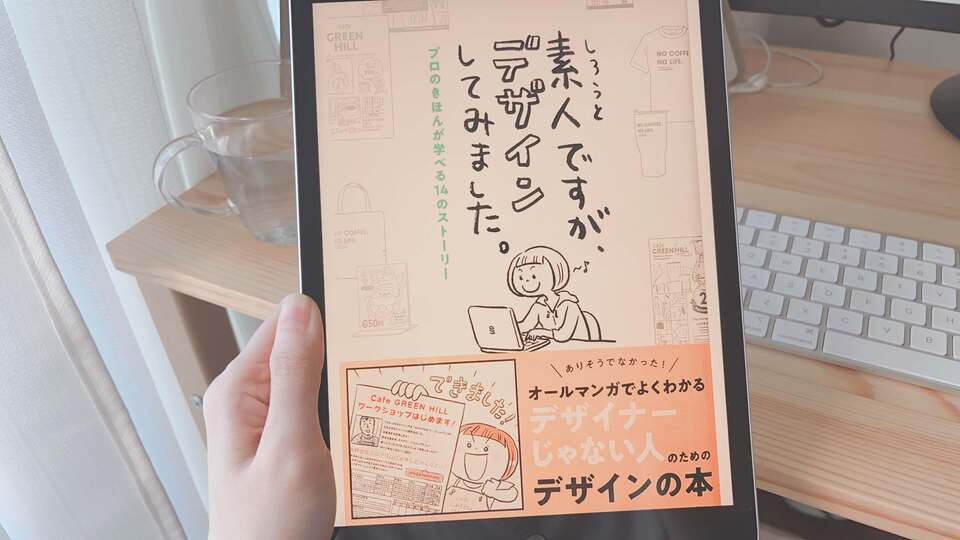 しろうと
素人ですが、
デザイン
してみました。
プロのきほんが学べる14のストーリー
cafe
GREEN
HILL
NO COFFEE,
NO LIFE.
NO COFFEE,
NO LIFE.
NO COFFEE,
NO LIFE.
GREEN HILL
850
できました!
Cafe GREEN HILL
ワークショップはじめます!
ありそうでなかった!
オールマンガでよくわかる
デザイナー
じゃない人のための
デザインの本